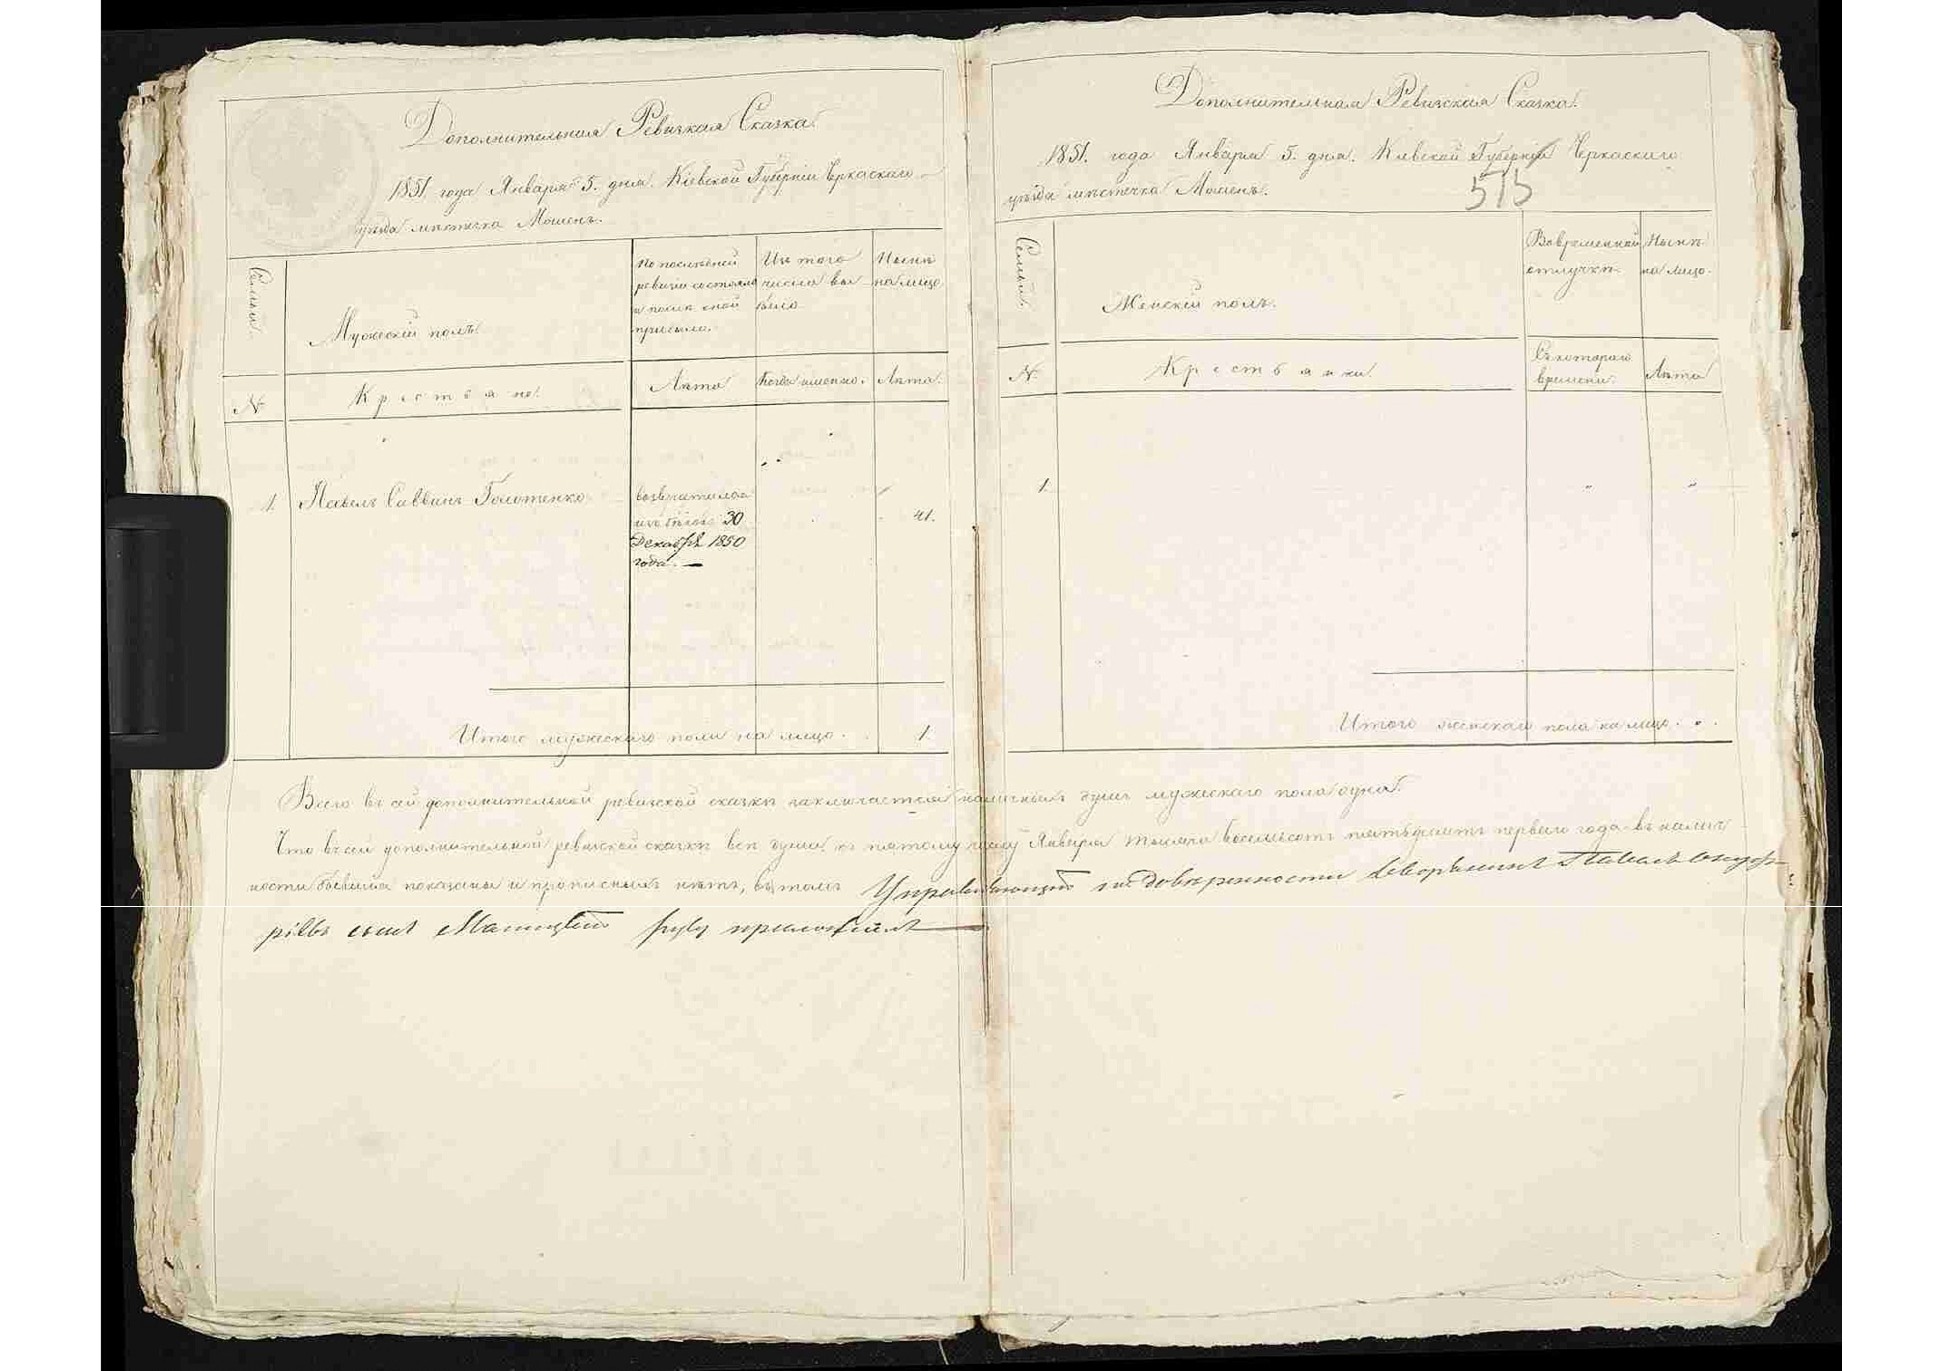 Дополнительная Ревизкая Сказка.
1851 года Января 5. дня. Кіевской Губерніи Черкаского
уѣзда мѣстечка Мошенъ.
Семьи.
Мужескій полъ.
По послѣдней
ревизіи состояло
и послѣ оной
прибыло.
Изъ того
числа вы
было
Нынѣ
на лицо.
№
Крестьяне.
Лѣта
Когда именно.
Лѣта.
1.
Павелъ Саввинъ Голотенко
возвратился
изъ бѣговъ 30
Декабря 1850
года. —
41.
Итого мужескаго пола на лицо.
1.
Дополнительная Ревизская Сказка.
1851. года Января 5. дня. Кіевской Губерніи Черкаского
575
уѣзда мѣстечка Мошенъ.
Семьи.
Женскій полъ.
Во временной
отлучкѣ.
Нынѣ
на лицо.
№
Крестьянки.
Съ котораго
времени.
Лѣта
1.
"
"
Итого женскаго пола на лицо. " .
Всего въ сей дополнительной ревизской сказкѣ заключается наличныхъ душъ мужескаго пола одна.
Что въ сей дополнительной ревизской сказкѣ всѣ души, къ пятому числу Января тысяча восемьсотъ пятьдесятъ перваго года въ налич
ности бывшія показаны и прописныхъ нѣтъ, въ томъ Управляющій по довѣренности дворянинъ Павелъ
сынъ руку приложилъ